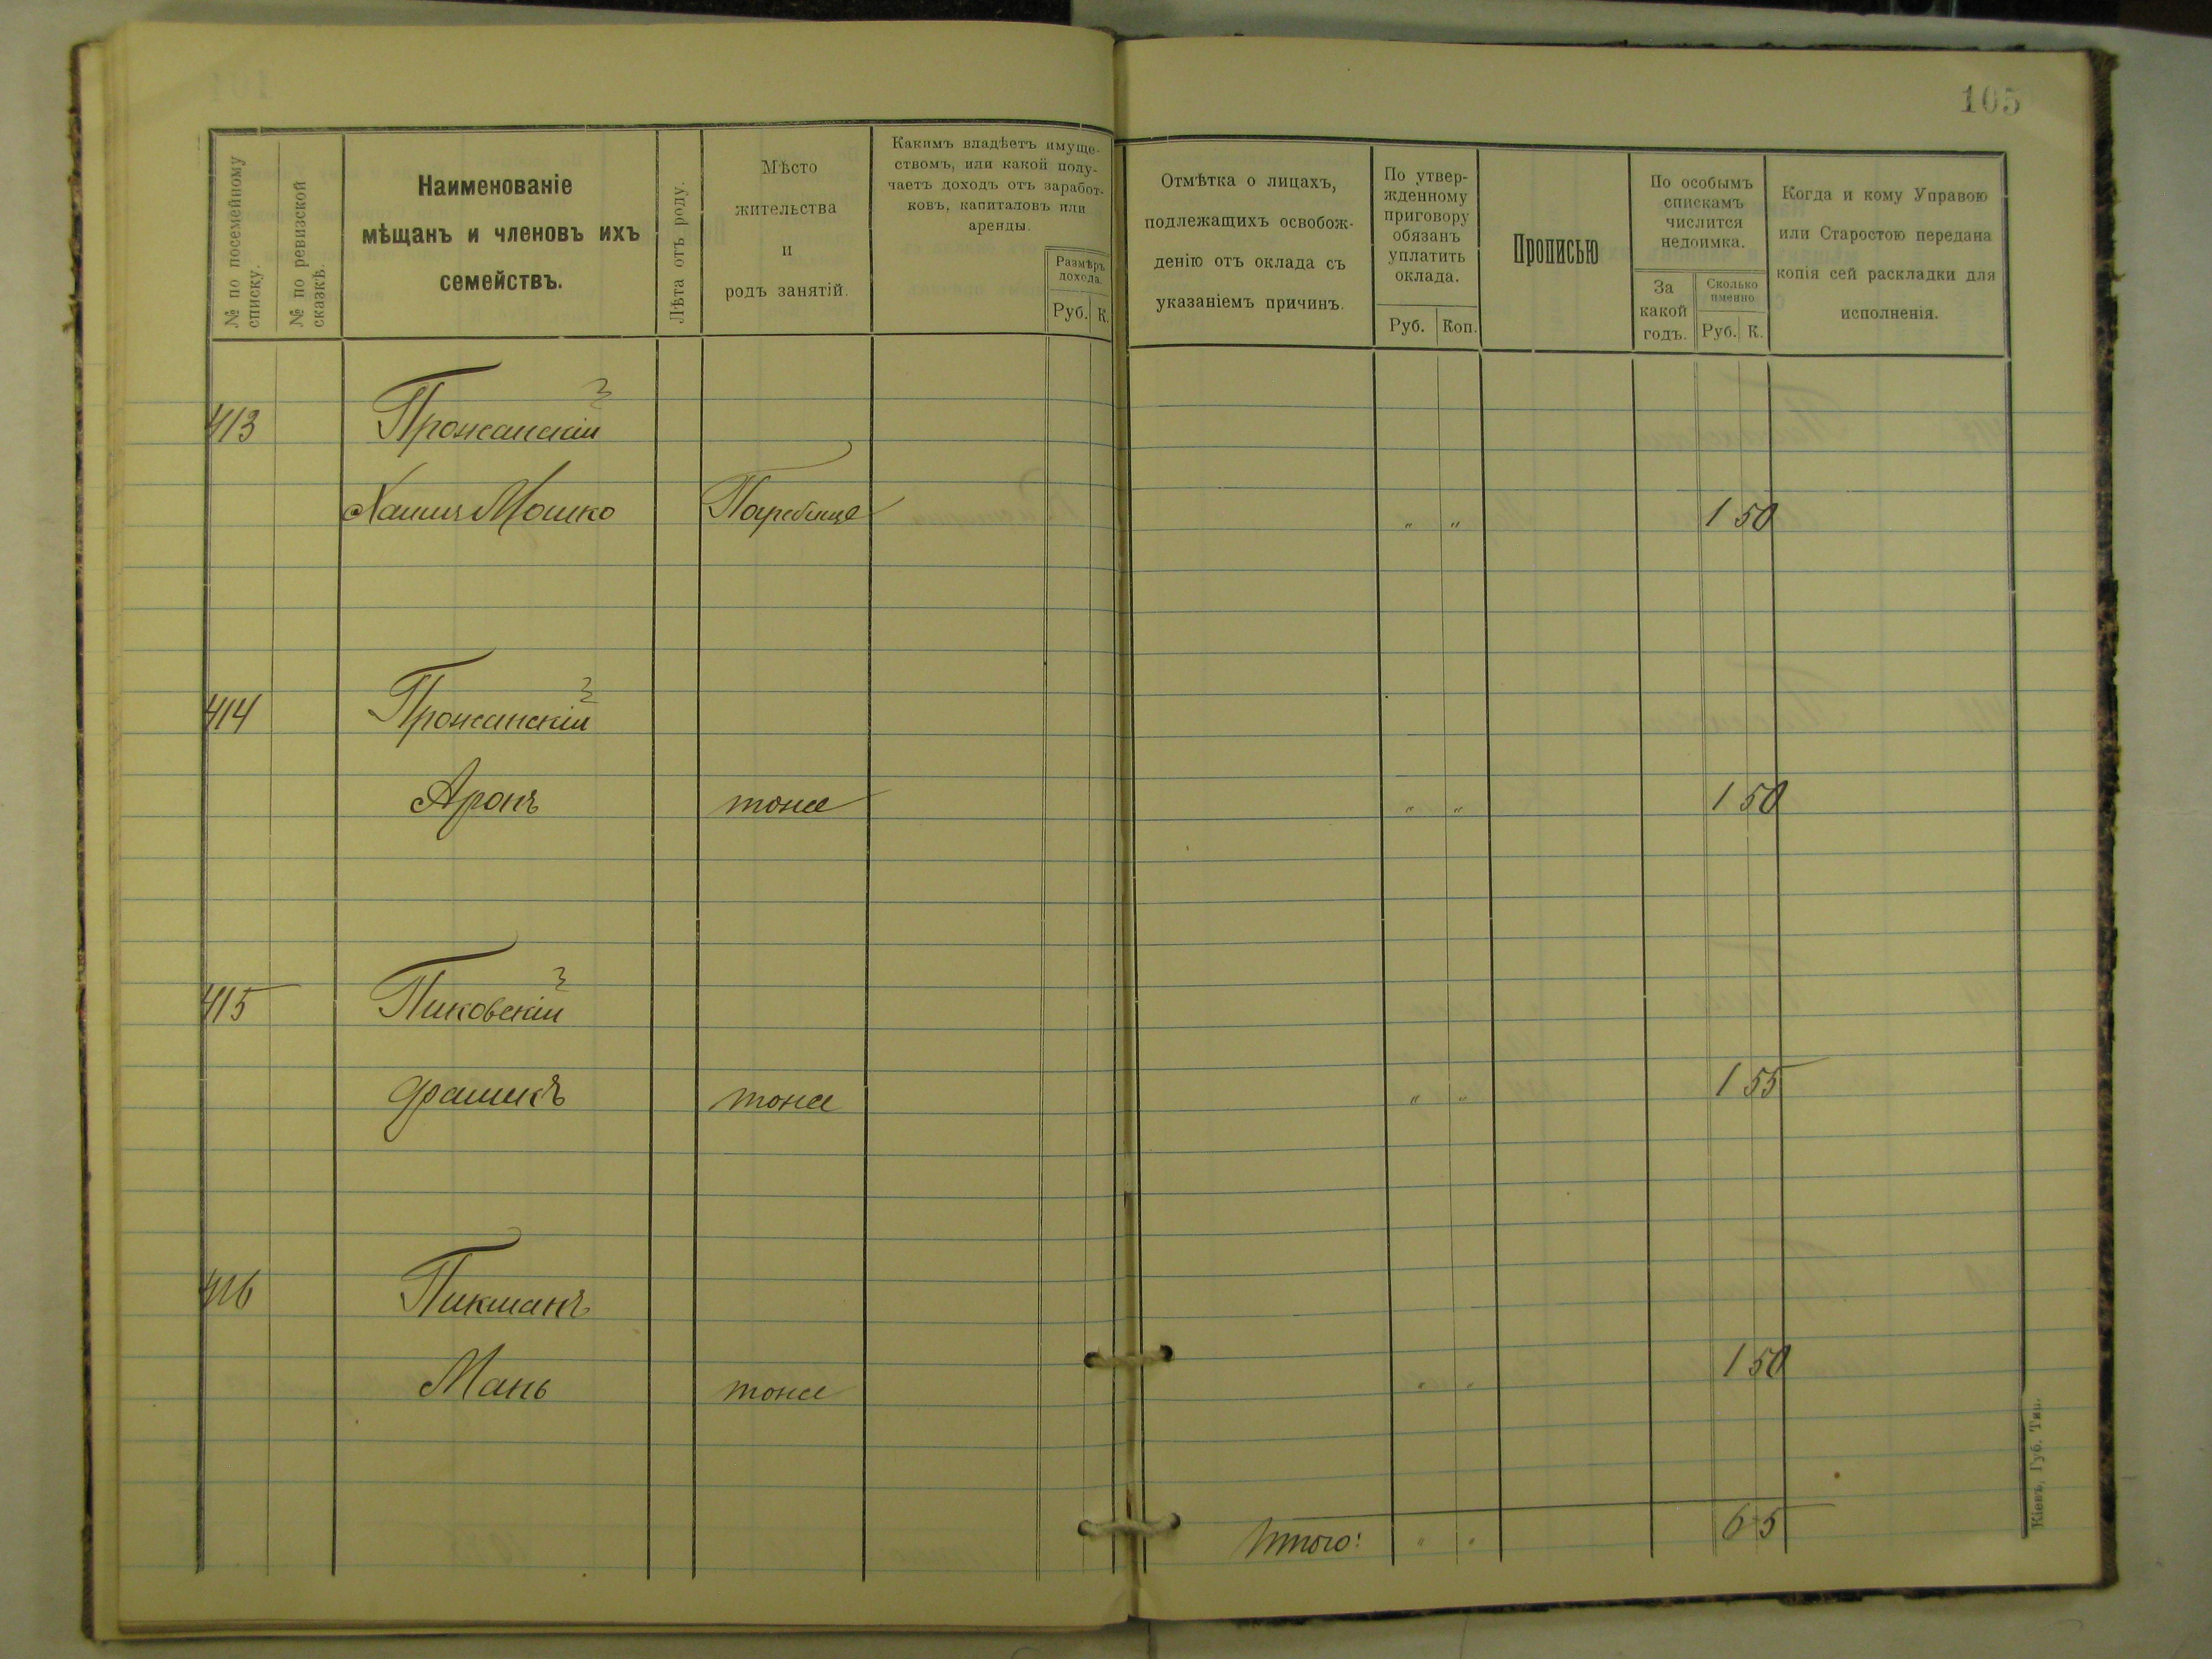 105
№ по посемейному списку.
№ по ревизской сказкѣ.
Наименованіе
мѣщанъ и членовъ ихъ
семействъ.
Лѣта отъ роду.
Мѣсто
жительства
и
родъ занятій.
Какимъ владѣетъ имуще-
ствомъ, или какой полу-
чаетъ доходъ отъ заработ-
ковъ, капиталовъ или
аренды.
Размѣръ
дохода.
Руб. К.
Отмѣтка о лицахъ,
подлежащихъ освобож-
денію отъ оклада съ
указаніемъ причинъ.
По утвер-
жденному
приговору
обязанъ
уплатить
оклада.
Руб. Коп.
Прописью
По особымъ
спискамъ
числится
недоимка.
За
какой
годъ.
Сколько
именно
Руб. К.
Когда и кому Управою
или Старостою передана
копія сей раскладки для
исполненія.
413 Прожанскій
Хаимъ Мошко Погребище " " 1 50
414 Прожанскій
Аронъ тоже " " 1 50
415 Пиковскій
тоже " " 1 55
416 Пикманъ
Мань тоже " " 1 50
Итого: " " 6 5
Кіевъ, Губ. Тип.